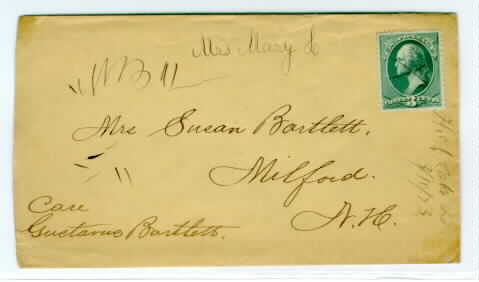 Mrs Mary
Mrs Susan Bartlett.
Milford.
N.H.
Care
Gustavus Bartlett.
3